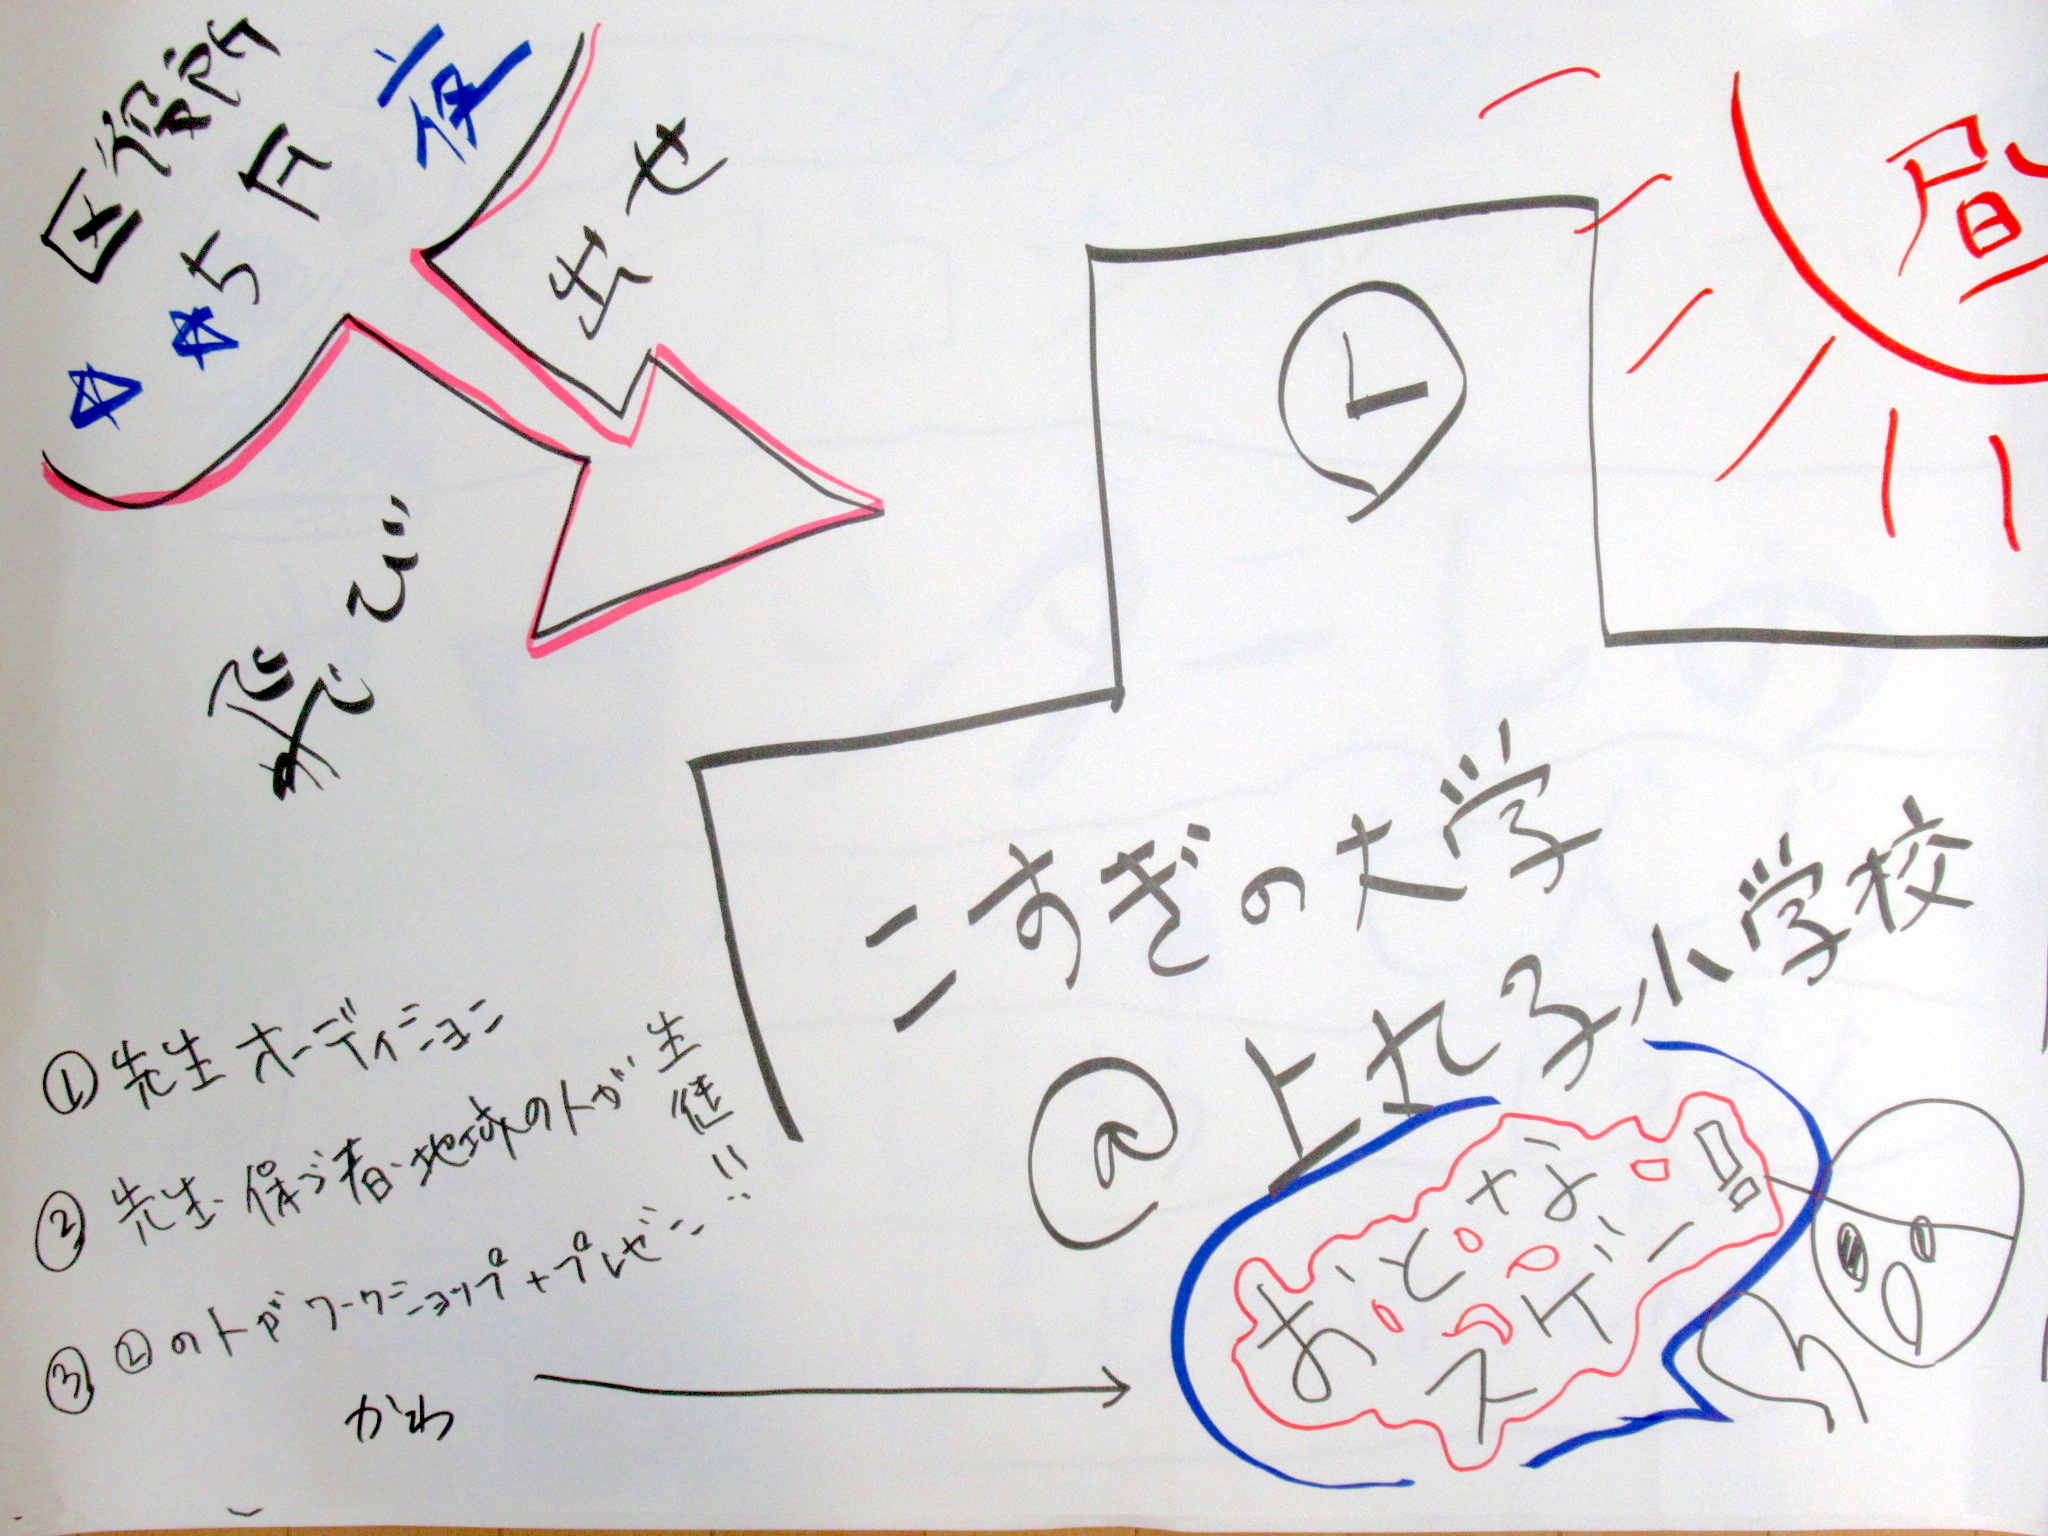 区役所
5F
夜
飛び
出せ
昼
こすぎの大学
@上丸子小学校
①先生オーディション
②先生・保ゴ者・地域の人が生徒!!
③②の人がワークショップ+プレゼン
かわ
おとな
スゲー!!